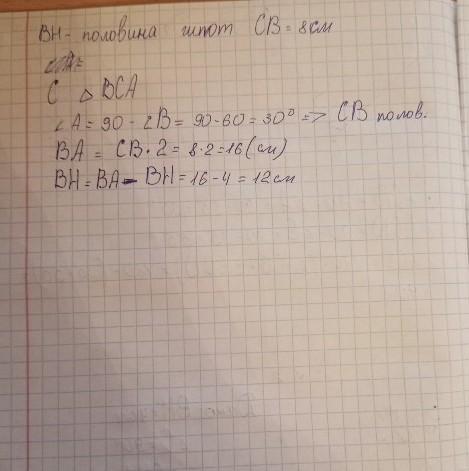 BH - половина шпот CB = 8см
C △ BCA
∠A = 90 - ∠B = 90 - 60 = 30° => CB полов.
BA = CB · 2 = 8 · 2 = 16 (см)
BH = BA - BH = 16 - 4 = 12 см